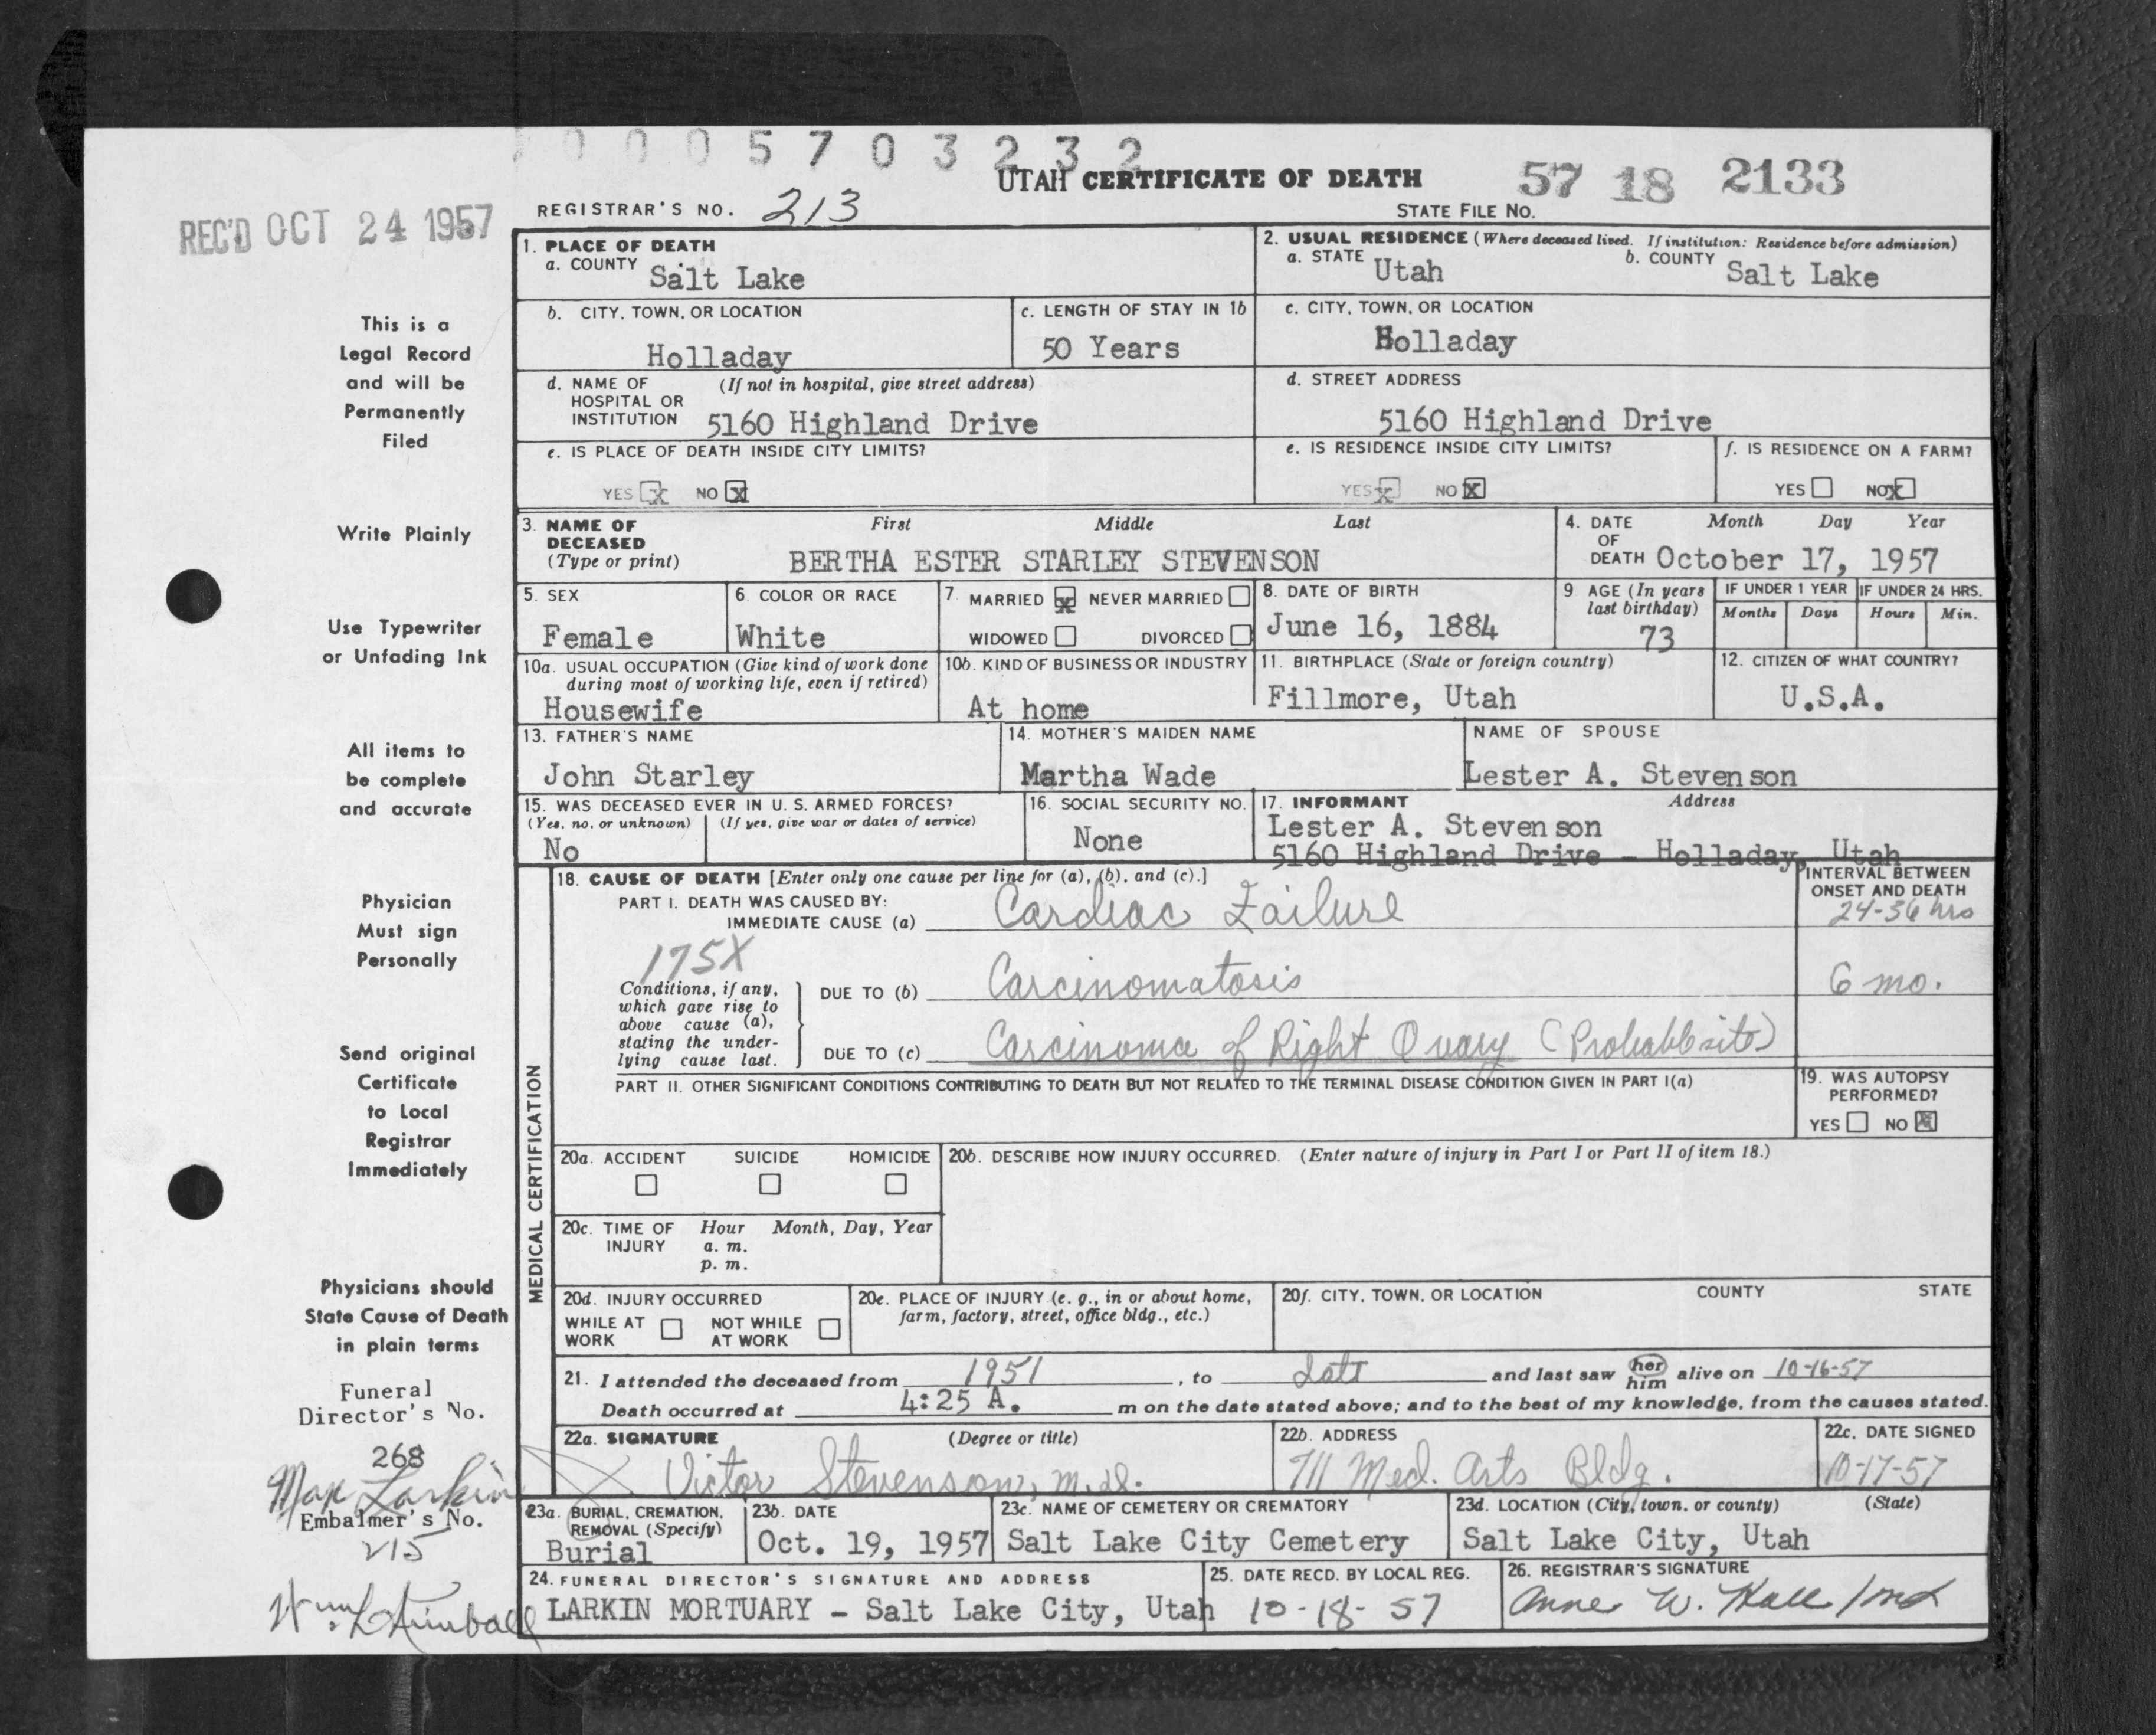 0 0 0 5 7 0 3 2 3 2
UTAH CERTIFICATE OF DEATH 57 18 2133
REC'D OCT 24 1957
REGISTRAR'S NO. 213 STATE FILE NO.
This is a
Legal Record
and will be
Permanently
Filed
Write Plainly
Use Typewriter
or Unfading Ink
All items to
be complete
and accurate
Physician
Must sign
Personally
Send original
Certificate
to Local
Registrar
Immediately
Physicians should
State Cause of Death
in plain terms
Funeral
Director's No.
268
Max Larkin
Embalmer's No.
215
Wm L Kimball
1. PLACE OF DEATH
a. COUNTY Salt Lake
2. USUAL RESIDENCE (Where deceased lived. If institution: Residence before admission)
a. STATE Utah b. COUNTY Salt Lake
b. CITY, TOWN, OR LOCATION
Holladay
c. LENGTH OF STAY IN 1b
50 Years
c. CITY, TOWN, OR LOCATION
Holladay
d. NAME OF (If not in hospital, give street address)
HOSPITAL OR
INSTITUTION 5160 Highland Drive
d. STREET ADDRESS
5160 Highland Drive
e. IS PLACE OF DEATH INSIDE CITY LIMITS?
YES x NO x
e. IS RESIDENCE INSIDE CITY LIMITS?
YES x NO x
f. IS RESIDENCE ON A FARM?
YES NO x
3. NAME OF First Middle Last
DECEASED
(Type or print) BERTHA ESTER STARLEY STEVENSON
4. DATE Month Day Year
OF
DEATH October 17, 1957
5. SEX
Female
6. COLOR OR RACE
White
7. MARRIED x NEVER MARRIED
WIDOWED DIVORCED
8. DATE OF BIRTH
June 16, 1884
9 AGE (In years
last birthday)
73
IF UNDER 1 YEAR
Months Days
IF UNDER 24 HRS.
Hours Min.
10a. USUAL OCCUPATION (Give kind of work done
during most of working life, even if retired)
Housewife
10b. KIND OF BUSINESS OR INDUSTRY
At home
11. BIRTHPLACE (State or foreign country)
Fillmore, Utah
12. CITIZEN OF WHAT COUNTRY?
U.S.A.
13. FATHER'S NAME
John Starley
14. MOTHER'S MAIDEN NAME
Martha Wade
NAME OF SPOUSE
Lester A. Stevenson
15. WAS DECEASED EVER IN U. S. ARMED FORCES?
(Yes, no, or unknown) (If yes, give war or dates of service)
No
16. SOCIAL SECURITY NO.
None
17. INFORMANT Address
Lester A. Stevenson
5160 Highland Drive - Holladay, Utah
MEDICAL CERTIFICATION
18. CAUSE OF DEATH [Enter only one cause per line for (a), (b), and (c).]
INTERVAL BETWEEN
ONSET AND DEATH
PART I. DEATH WAS CAUSED BY:
IMMEDIATE CAUSE (a) Cardiac Failure 24-36 hrs
175X
Conditions, if any,
which gave rise to
above cause (a),
stating the under-
lying cause last.
DUE TO (b) Carcinomatosis 6 mo.
DUE TO (c) Carcinoma of Right Ovary (Probable site)
PART II. OTHER SIGNIFICANT CONDITIONS CONTRIBUTING TO DEATH BUT NOT RELATED TO THE TERMINAL DISEASE CONDITION GIVEN IN PART I(a)
19. WAS AUTOPSY
PERFORMED?
YES NO x
20a. ACCIDENT SUICIDE HOMICIDE
20b. DESCRIBE HOW INJURY OCCURRED. (Enter nature of injury in Part I or Part II of item 18.)
20c. TIME OF Hour Month, Day, Year
INJURY a. m.
p. m.
20d. INJURY OCCURRED
WHILE AT NOT WHILE
WORK AT WORK
20e. PLACE OF INJURY (e. g., in or about home,
farm, factory, street, office bldg., etc.)
20f. CITY, TOWN, OR LOCATION COUNTY STATE
21. I attended the deceased from 1951, to date and last saw her him alive on 10-16-57
Death occurred at 4:25 A. m on the date stated above; and to the best of my knowledge, from the causes stated.
22a. SIGNATURE (Degree or title)
Victor Stevenson, M.D.
22b. ADDRESS
711 Med. Arts Bldg.
22c. DATE SIGNED
10-17-57
23a. BURIAL, CREMATION,
REMOVAL (Specify)
Burial
23b. DATE
Oct. 19, 1957
23c. NAME OF CEMETERY OR CREMATORY
Salt Lake City Cemetery
23d. LOCATION (City, town, or county) (State)
Salt Lake City, Utah
24. FUNERAL DIRECTOR'S SIGNATURE AND ADDRESS
LARKIN MORTUARY - Salt Lake City, Utah
25. DATE RECD. BY LOCAL REG.
10-18-57
26. REGISTRAR'S SIGNATURE
Anne W. Hall /md